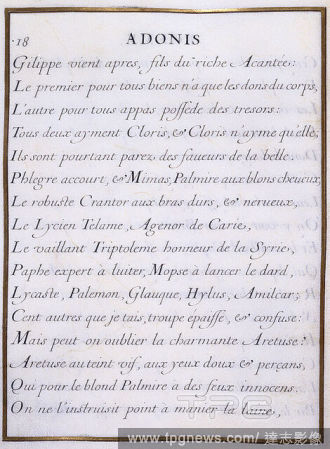 ·18
ADONIS
Gilippe vient apres, fils du riche Acantée:
Le premier pour tous biens n'a que les dons du corps,
L'autre pour tous appas possede des tresors:
Tous deux ayment Cloris, & Cloris n'ayme qu'elle;
Ils sont pourtant parez des faueurs de la belle.
Phlegre accourt, & Mimas, Palmire aux blons cheueux,
Le robuste Crantor aux bras durs, & nerueux,
Le Lycien Telame, Agenor de Carie,
Le vaillant Triptoleme honneur de la Syrie,
Paphe expert à luiter, Mopse à lancer le dard,
Lycaste, Palemon, Glauque, Hylus, Amilcar;
Cent autres que je tais, troupe épaisse, & confuse:
Mais peut on oublier la charmante Aretuse?
Aretuse au teint vif, aux yeux doux & perçans,
Qui pour le blond Palmire a des feux innocens.
On ne l'instruisit point à manier la laine,
TPG
www.tpgnews.com/達志影像